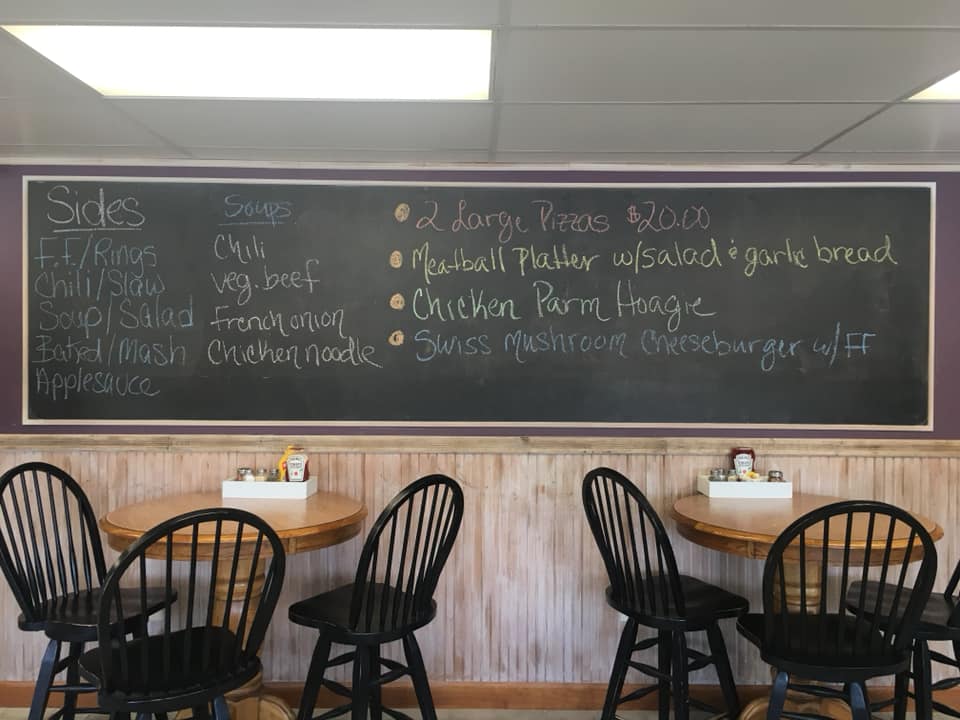 Sides
F.F./Rings
Chili/Slaw
Soup/Salad
Baked/Mash
Applesauce
Soups
Chili
veg. beef
French onion
Chicken noodle
2 Large Pizzas $20.00
Meatball Platter w/salad & garlic bread
Chicken Parm Hoagie
Swiss Mushroom Cheeseburger w/ FF
HEINZ